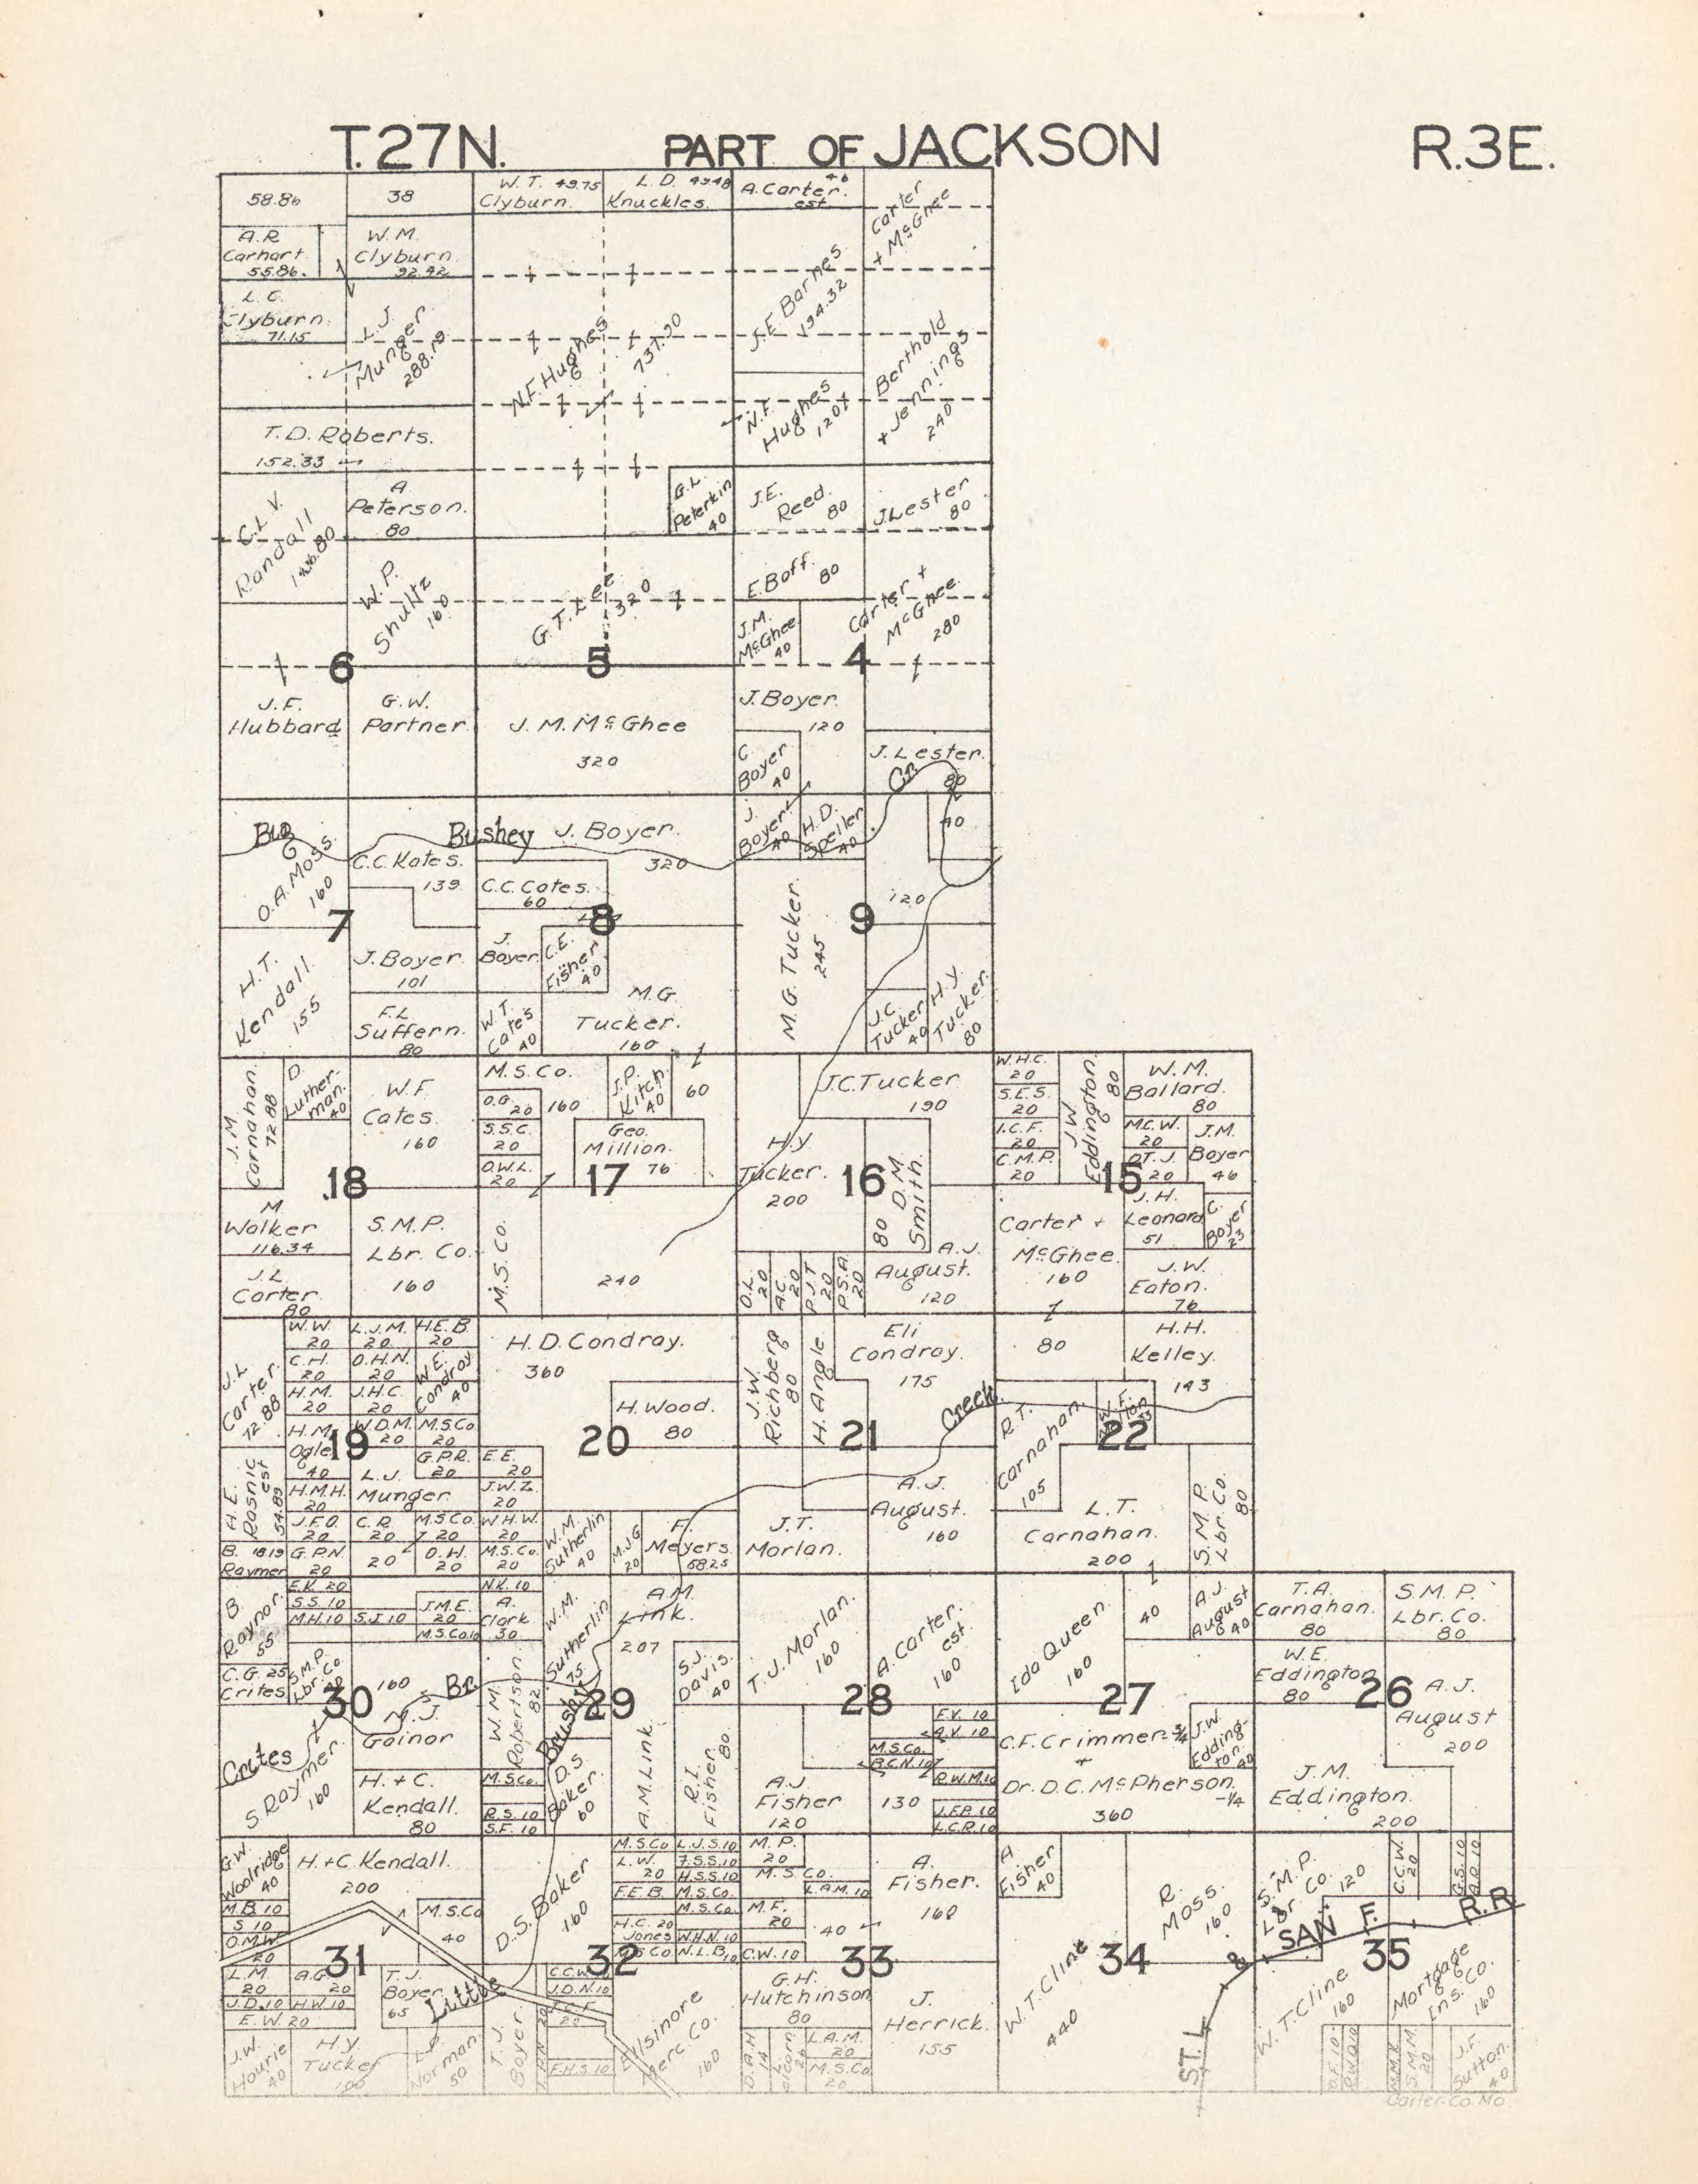 T.27N. PART OF JACKSON R.3E.
58.86
38
W.T. 49.75
Clyburn.
L.D. 49.48
Knuckles.
A. Carter.
est
46
Carter
+ McGhee
A.R
Carhart
55.86.
W.M.
Clyburn
92.42
L.C.
Clyburn.
71.15
L.J.
Munger
288.19
N.F. Hughes
737.90
J.E. Barnes
194.32
N.F.
Hughes
120
Berthold
+ Jennings
240
T.D. Roberts.
152.33
C.L.V.
Randall
A
Peterson.
80
G.L.
Peterkin
40
J.E.
Reed.
80
J. Lester
80
W.P.
Shultz
160
G.T. Lee
320
E. Boff.
80
J.M.
McGhee
40
Carter +
McGhee.
280
6
5
4
J.F.
Hubbard
G.W.
Partner
J.M. McGhee
320
J. Boyer.
120
C
Boyer
40
J. Lester.
80
Cr.
Big
Bushey
J. Boyer.
320
J.
Boyer
40
H.D.
Speller
40
40
O.A. Moss.
160
C.C. Kates.
139
C.C. Cates.
60
120
7
8
9
H.T.
Kendall.
155
J. Boyer.
101
J.
Boyer
C.E.
Fisher
40
M.G. Tucker.
245
F.L.
Suffern.
80
W.T.
Cates
40
M.G.
Tucker.
160
J.C.
Tucker
40
H.Y.
Tucker.
80
J.M
Carnahan.
72.88
D.
Luther-
man.
40
W.F.
Cates.
160
M.S. Co.
O.G.
20
160
J.P.
Kitch
40
60
J.C. Tucker
190
W.H.C.
20
S.E.S.
20
J.W
Eddington.
80
W.M.
Ballard.
80
S.S.C.
20
Geo.
Million.
76
I.C.F.
20
M.C.W.
20
J.M.
Boyer
46
O.W.L.
20
H.Y.
Tucker.
200
D.M.
Smith.
80
C.M.P.
20
O.T.J.
20
18
17
16
15
M
Walker
116.34
S.M.P.
Lbr. Co.
160
M.S. Co.
240
Carter +
McGhee.
160
J.H.
Leonard
51
C.
Boyer
23
J.L
Carter
80
O.L.
20
A.C.
20
P.J.T
20
P.S.A
20
A.J.
August.
120
J.W.
Eaton.
76
J.L
Carter.
72.88
W.W.
20
L.J.M.
20
H.E.B
20
H.D. Condray.
360
J.W.
Richberg
80
H. Angle
Eli
Condray.
175
80
H.H.
Kelley.
143
C.H.
20
O.H.N.
20
W.E.
Condray
40
H.M.
20
J.H.C.
20
H. Wood.
80
Creek
R.T.
Carnahan.
105
H.M.
Ogle
40
W.D.M.
20
M.S. Co
20
19
20
21
22
H.E.
Rasnic
est
54.89
L.J.
Munger
G.P.R.
20
E.E.
20
H.M.H.
20
J.W.Z.
20
A.J.
August.
160
L.T.
Carnahan.
200
S.M.P.
Lbr. Co.
80
J.F.O.
20
C.R.
20
M.S. Co.
20
W.H.W.
20
W.M.
Sutherlin
40
M.J.G
20
F.
Meyers.
58.25
J.T.
Morlan.
B. 18.19
Raymer
G.P.N
20
20
O.H.
20
M.S. Co.
20
B
Raynor.
55
E.K. 20
S.S. 10
M.H. 10
S.J. 10
J.M.E.
20
M.S. Co. 10
N.K. 10
A.
Clark
30
W.M.
Sutherlin
75
A.M.
Link.
207
S.J.
Davis.
40
T.J. Morlan.
160
A. Carter.
est.
160
Ida Queen.
160
40
A.J.
August
40
T.A.
Carnahan.
80
S.M.P.
Lbr. Co.
80
C.G. 25
Crites
S.M.P.
Lbr. Co
40
160
Br.
W.M.
Robertson.
82
W.E.
Eddington
80
30
29
28
27
26
A.J.
August
200
Crites
S. Raymer.
160
M.J.
Gainor
Brushy
A.M. Link.
R.I.
Fisher.
80
E.V. 10
A.V. 10
M.S. Co.
B.C.N. 10
C.F. Crimmer- 3/4
+
Dr. D.C. McPherson.
-1/4
360
J.W.
Edding-
ton.
40
H. + C.
Kendall.
80
M.S. Co.
R.S. 10
S.F. 10
D.S.
Baker.
60
A.J.
Fisher
120
130
R.W.M. 10
J.F.P. 10
L.C.R. 10
J.M.
Eddington.
200
G.W.
Woolridge
40
H. + C. Kendall.
200
M.S. Co
40
D.S. Baker
160
M.S. Co
L.J.S. 10
L.W.
20
F.S.S. 10
H.S.S. 10
F.E.B.
M.S. Co.
M.S. Co.
M.P.
20
M.S. Co.
L.A.M. 10
A.
Fisher.
160
A
Fisher
40
R.
Moss.
160
S.M.P.
Lbr. Co.
120
C.C.W.
20
G.S. 10
M.B. 10
S 10
O.M.W.
20
H.C. 20
Jones
W.H.N. 10
M.S Co
N.L.B. 10
M.F.
20
40
C.W. 10
ST. L. & SAN F. R.R
31
32
33
34
35
L.M
20
A.G.
20
T.J.
Boyer
65
Little
C.C.W.
J.D.N. 10
G.H.
Hutchinson
80
J.
Herrick.
155
W.T. Cline
440
W.T. Cline
160
Mortgage
Ins. Co.
160
J.D. 10
H.W. 10
E.W. 20
20
J.W.
Hourie
40
H.Y.
Tucker
100
Norman.
50
T.J.
Boyer
F.H.S. 10
Ellsinore
Merc. Co.
160
D.A.H
14
Alcorn
L.A.M.
20
M.S. Co
20
S.M.M.
20
J.F.
Sutton.
40
Carter-Co. Mo.